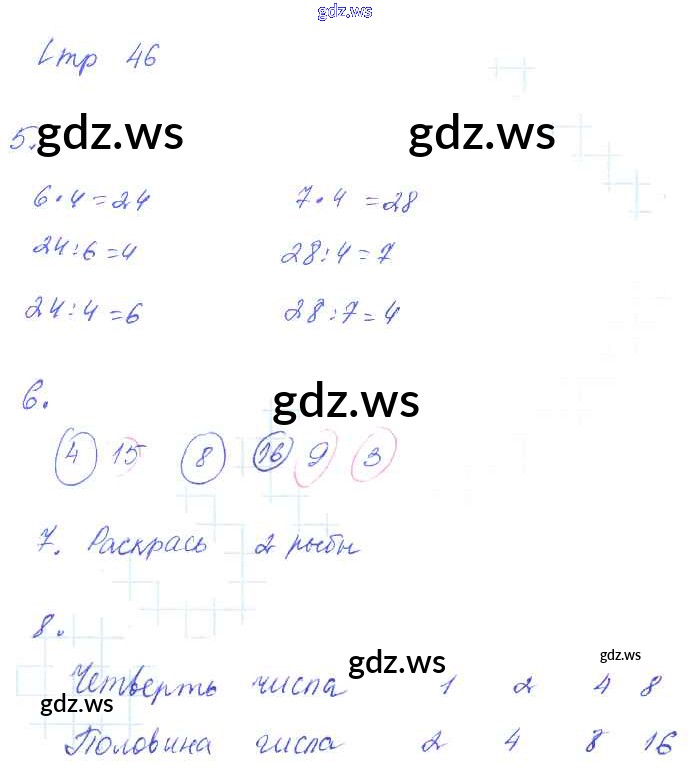 gdz.ws
Стр 46
5. gdz.ws gdz.ws
6·4=24 7·4=28
24:6=4 28:4=7
24:4=6 28:7=4
6. gdz.ws
4 15 8 16 9 3
7. Раскрась 2 рыбы
8.
gdz.ws gdz.ws
Четверть числа 1 2 4 8
gdz.ws
Половина числа 2 4 8 16